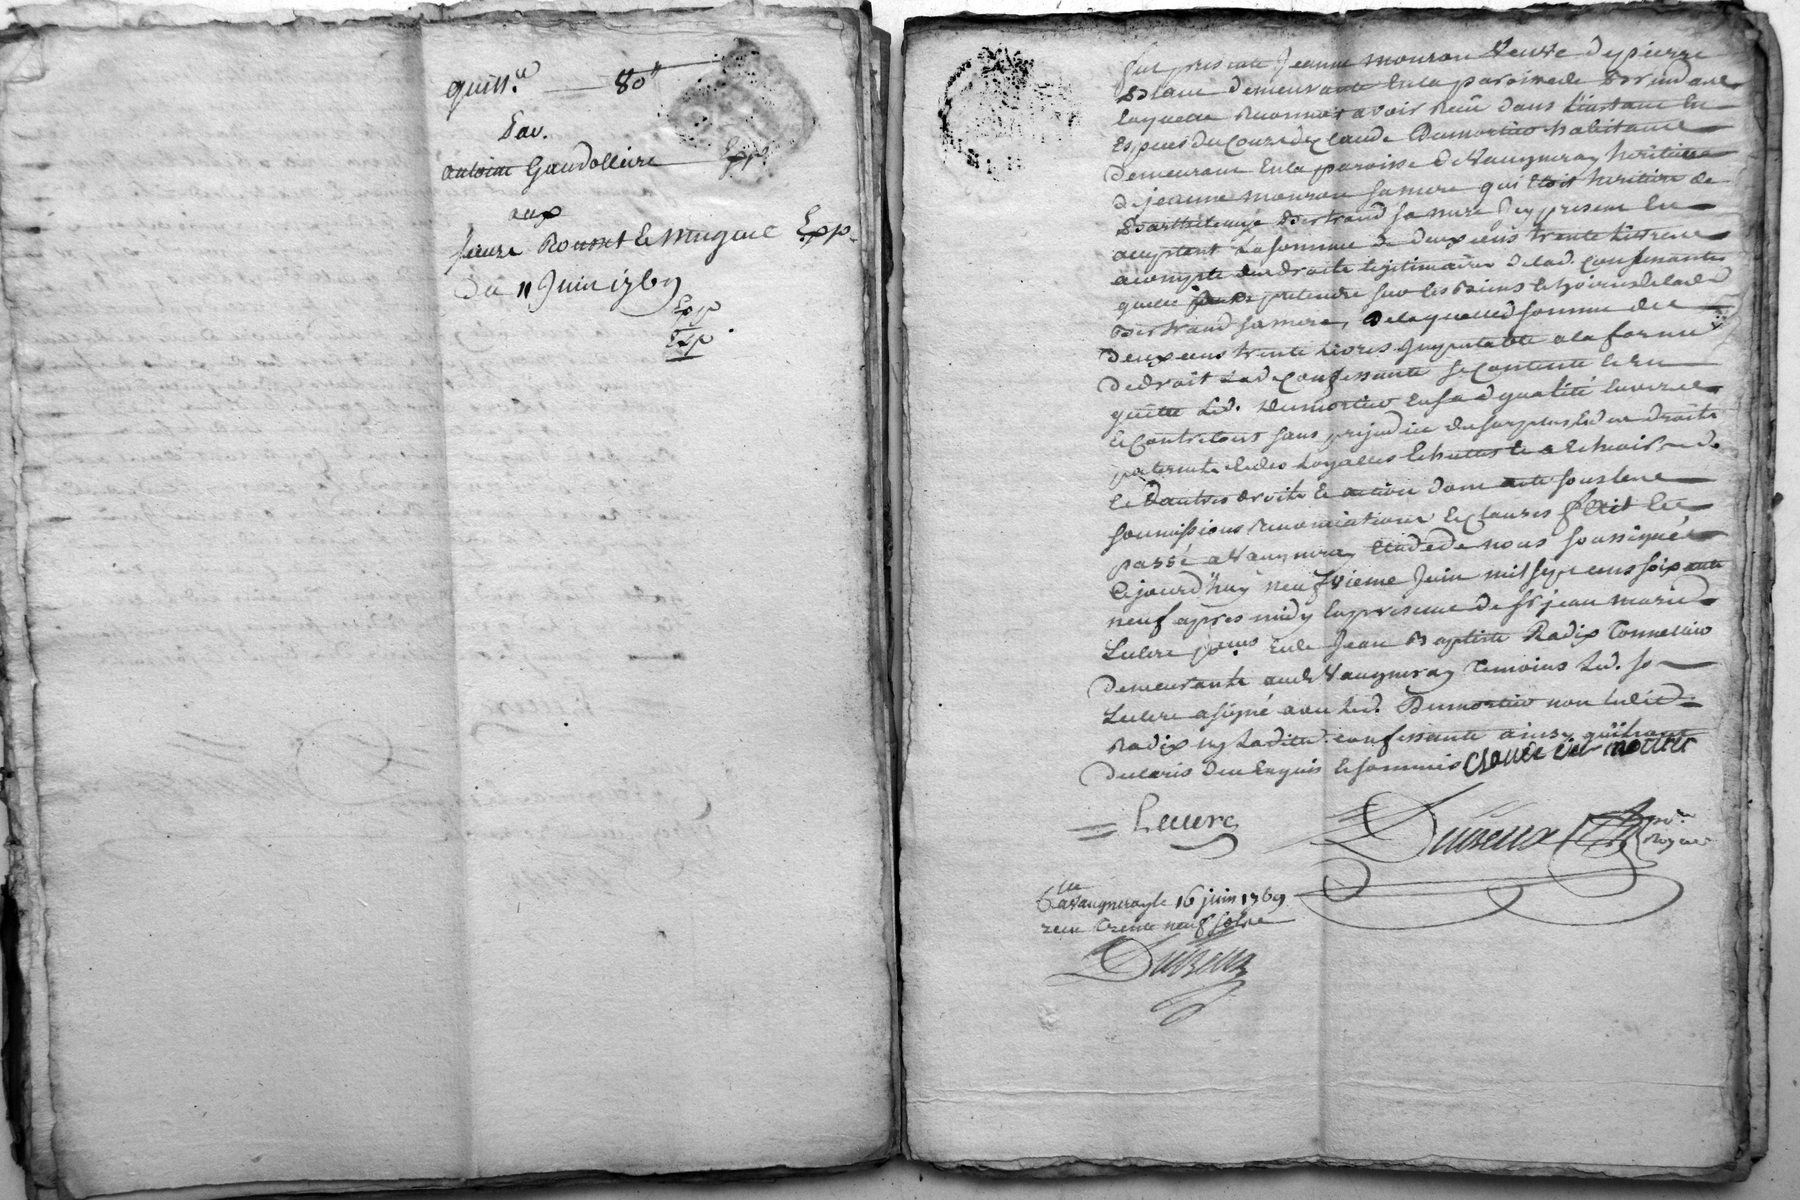 quitt.ce 80ll
Par.
antoine Gaudolliere Exp
aux
Jeure Rousset le Muguet Exp.
Du 11 Juin 1769
Exp
Exp.
fut presente Jeanne mouron Veuve de pierre
demeurante en la paroisse de Brindas
laquelle Reconnoit avoir Receû dans l'instant en
Especes du Cours de Claude Dumortier habitant
demeurant En la paroisse de Vaugneray heritier
de jeanne mouron sa mere qui Etoit heritiere de
Barthelemye Bertrand sa mere Icy present En
acceptant La somme de deux cens trente Livres
acompte des droits legitimaires de lad. confessante
quelle peut pretendre sur les Biens et hoirie de lad.
Bertrand sa mere, De laquelle somme de
deux cens trente Livres Imputable a la forme
de droit Lad. Confessante se contente et en
quitte Led. Dumortier En sa d. qualité Envers
et Contre tous sans prejudice du surplus Esd. droits
paternels et des Loyalles Echuttes et a Echoir
et dautres droits et action dont acte sous les
soumissions renonciations et Clauses fait et
passé a Vaugneray Etude de nous soussigné
Cejourd'huy neufvieme Juin mil sept cens soixante
neuf après midy En presence de sr jean marie
Leclerc et de Jean Baptiste Radix Tonnelier
demeurants aud. Vaugneray Temoins Led. sr
Leclerc a signé avec Led. Dumortier non Ledit
Radix ny Laditte confessante ainsy quils ont
declarés de ce Enquis et sommés Claude du mortier
Leclerc Dubreux no.re Royal
C.lle a Vaugneray le 16 juin 1769
receu trente neuf sols
Dubreux